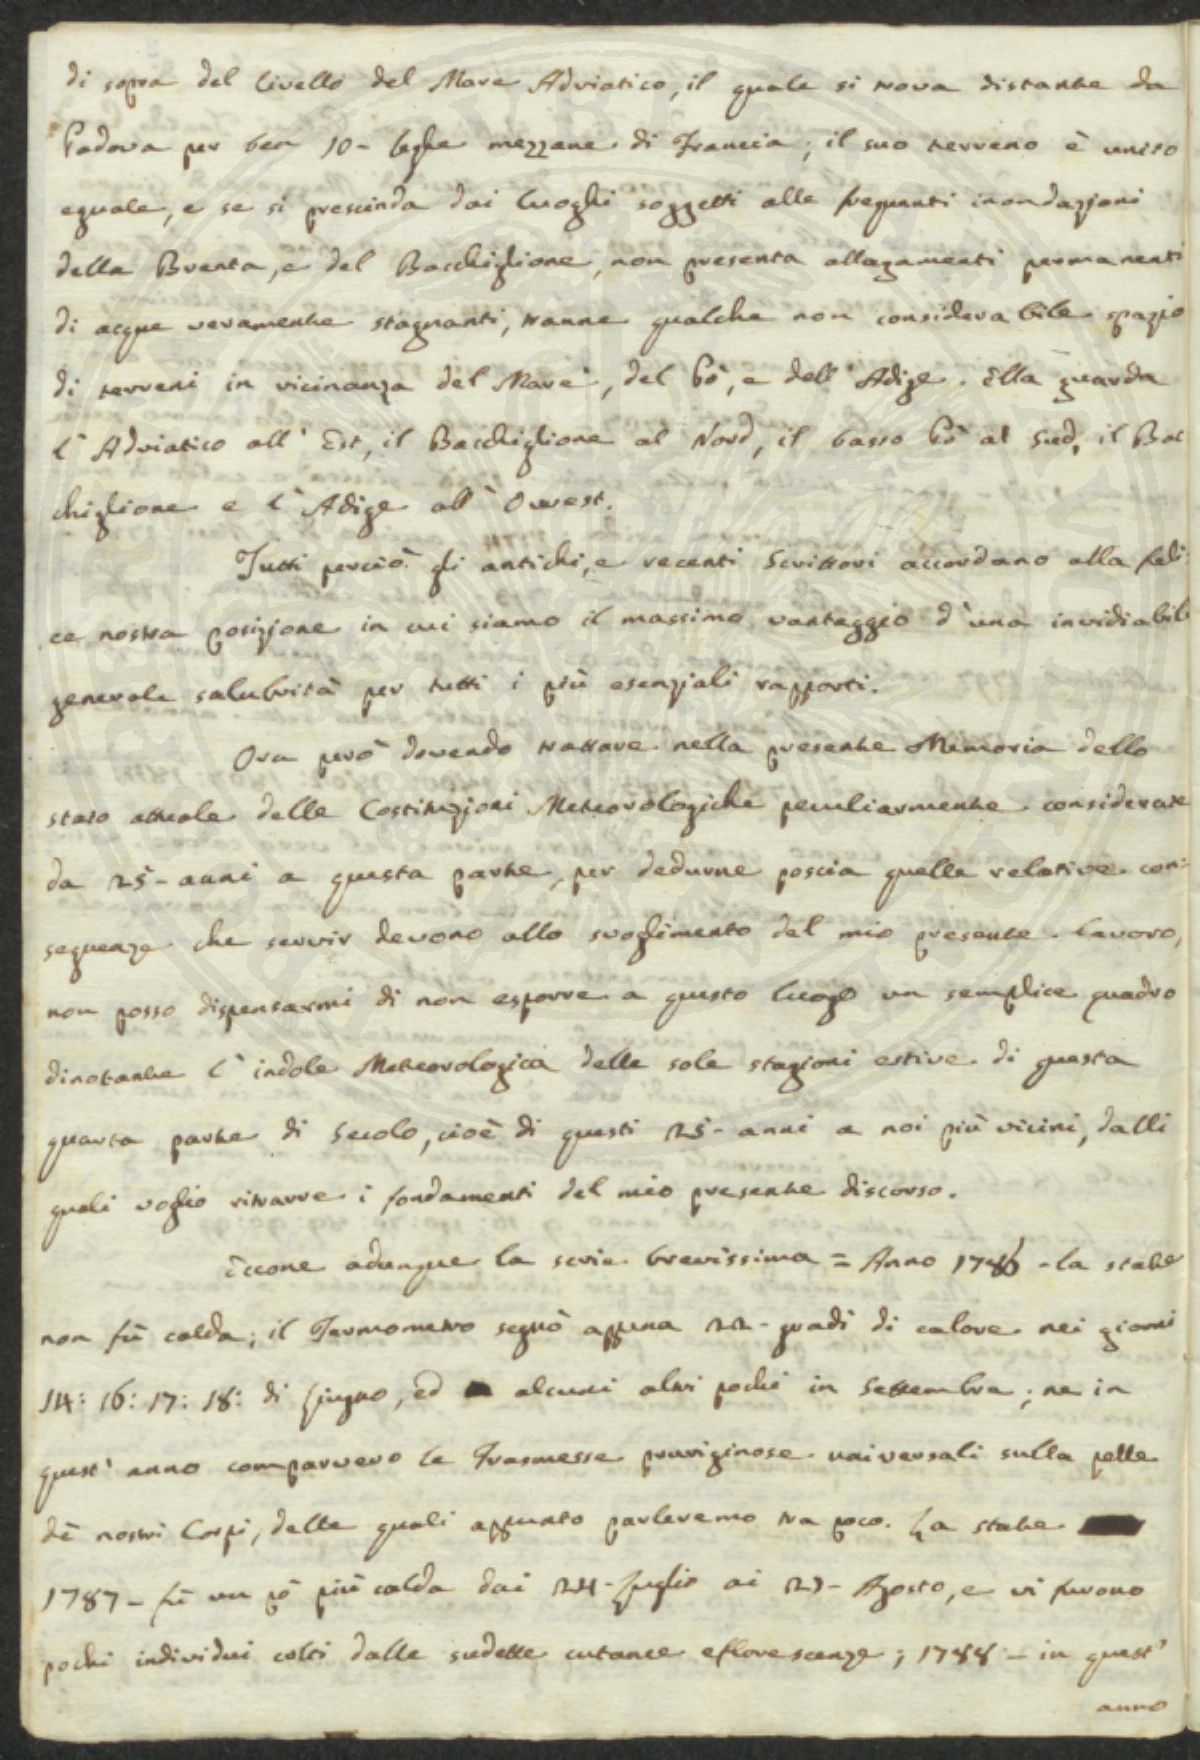 di sopra del livello del Mare Adriatico, il quale si trova distante da
Padova per ben 10 - leghe mezzane di Francia; il suo terreno è unito
eguale, e se si prescinda dai luoghi soggetti alle frequenti inondazioni
della Brenta, e del Bacchiglione, non presenta allagamenti permanenti
di acque veramente stagnanti, tranne qualche non considerabile spazio
di terreni in vicinanza del Mare, del Pò, e dell' Adige. Ella guarda
l' Adriatico all' Est, il Bacchiglione al Nord, il basso Pò al Sud, il Bac
chiglione e l' Adige all' Ovvest.
Tutti perciò gli antichi, e recenti Scrittori accordano alla feli
ce nostra posizione in cui siamo il massimo vantaggio d' una invidiabile
generale salubrità per tutti i più esenziali rapporti.
Ora però dovendo trattare nella presente Memoria dello
stato attuale delle Costituzioni Meteorologiche peculiarmente considerate
da 25 - anni a questa parte, per dedurne poscia quelle relative con:
seguenze che servir devono allo svoglimento del mio presente lavoro,
non posso dispensarmi di non esporre a questo luogo un semplice quadro
dinotante l' indole Meteorologica delle sole stagioni estive di questa
quarta parte di Secolo, cioè di questi 25 - anni a noi più vicini, dalli
quali voglio ritrarre i fondamenti del mio presente discorso.
Eccone adunque la serie brevissima = Anno 1786 - la state
non fù calda; il Termometro segnò appena 22 - gradi di calore nei giorni
14: 16: 17: 18: di Giugno, ed alcuni altri pochi in Settembre; ne in
quest' anno comparvero le Trasmesse pruriginose universali sulla pelle
dè nostri Corpi, delle quali appunto parleremo tra poco. La state
1787 - fù un pò più calda dai 24 - Luglio ai 27 - Agosto, e vi furono
pochi individui colti dalle sudette cutanee eflorescenze; 1788 - in quest'
anno